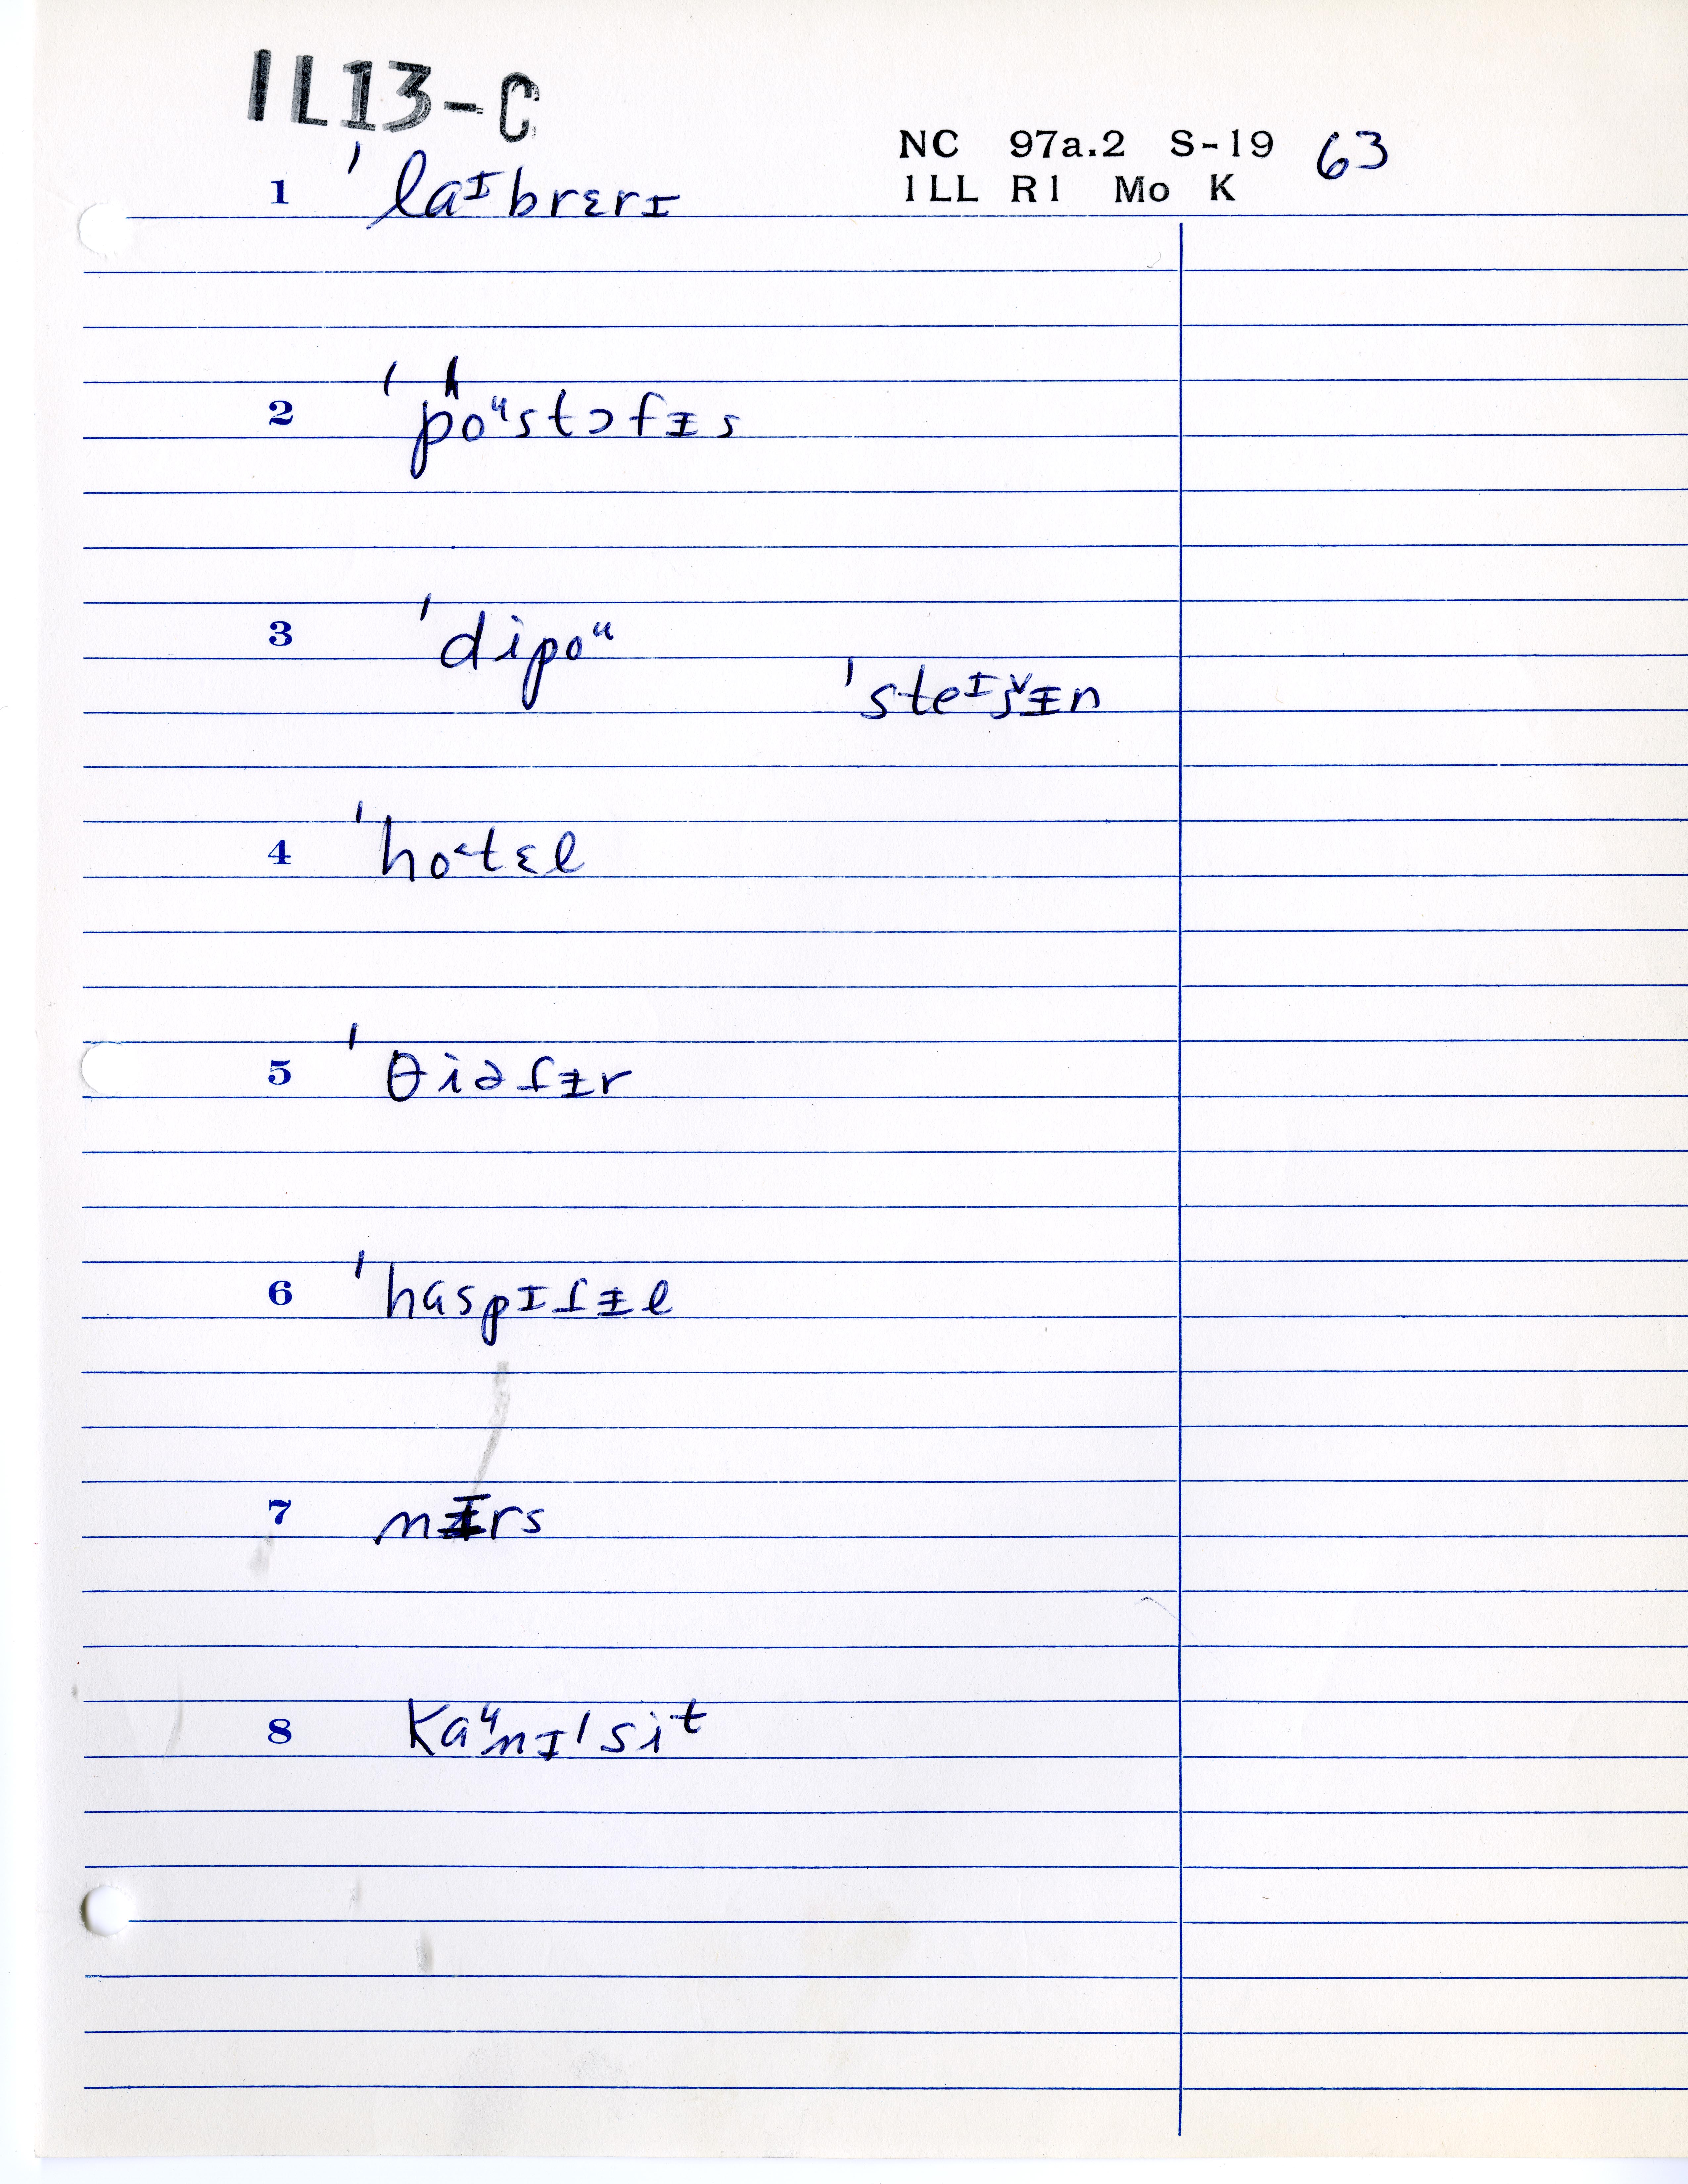 IL13-C
NC 97a.2 S-19 63
1LL R1 Mo K
1 ˈlaᶦbrɛrɪ
2 ˈpʰoᵘstɔfᵻs
3 ˈdipoᵘ
ˈsteᶦšᵻn
4 ˈho˂tɛl
5 ˈθiəɾᵻr
6 ˈhɑspɪɾᵻl
7 nᵻrs
8 kaᵘnɪˈsiᵗ